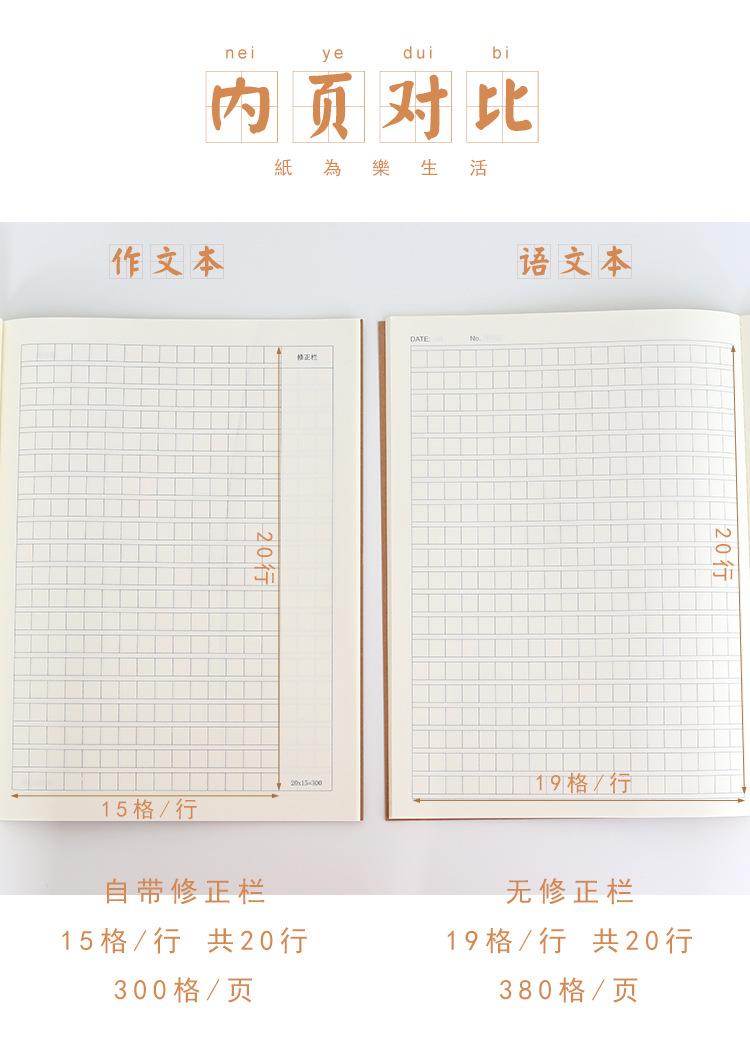 nei ye dui bi
内页对比
紙為樂生活
作文本
语文本
修正栏
DATE:
No.
20行
20行
20x15=300
15格/行
19格/行
自带修正栏
15格/行 共20行
300格/页
无修正栏
19格/行 共20行
380格/页